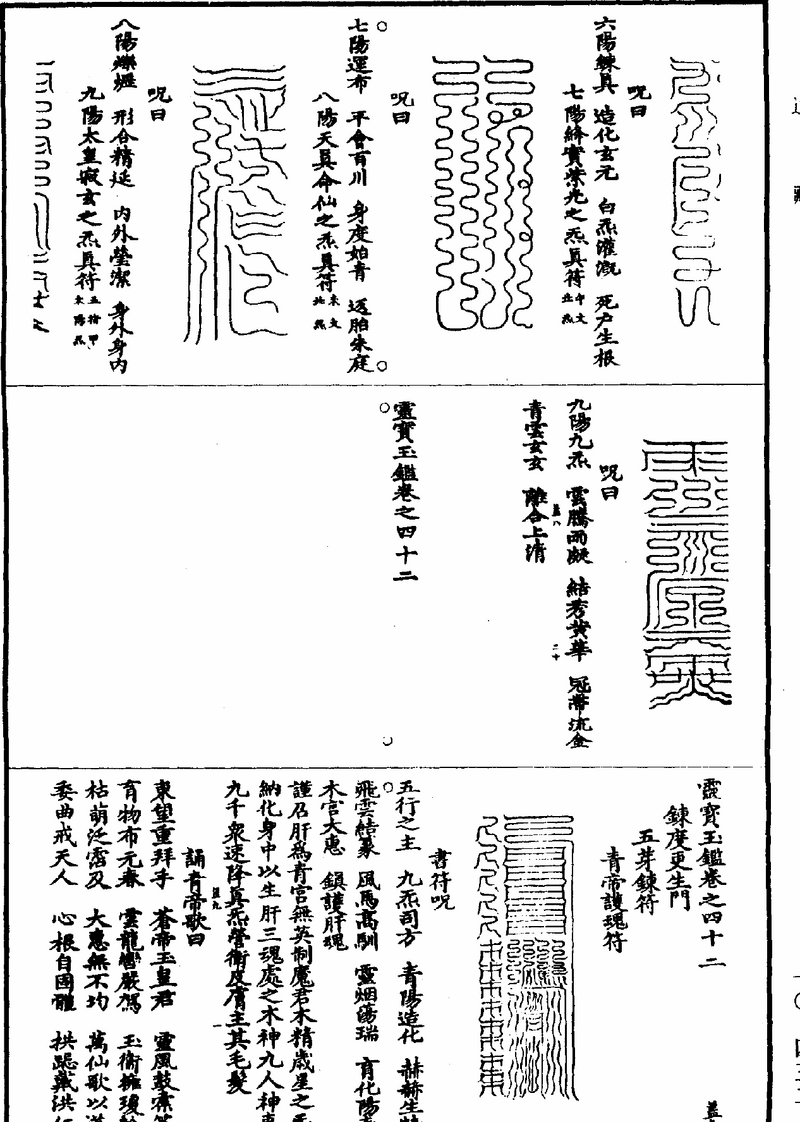 呪曰
六陽鍊真 造化玄元 白炁灌溉 死戶生根
七陽絳實紫光之炁真符
呪曰
七陽運布 平會百川 身度始青 逕胎朱庭
八陽天真命仙之炁真符
呪曰
八陽 形合精延 內外瑩潔 身外身內
九陽太皇寂玄之炁真符
呪曰
九陽九炁 雲騰雨凝 結秀黃華 冠帶流金
青雲玄玄 離合上清
靈寶玉鑑卷之四十二
靈寶玉鑑卷之四十二
鍊度更生門
五芽鍊符
青帝護魂符
書符呪
五行之主 九炁司方 青陽造化 赫赫生
飛雲結篆 風馬高馴 靈烟蕩瑞 育化陽
木官大惠 鎮護肝魂
謹召肝為青宮無英制魔君木精歲星之
納化身中以生肝三魂處之木神九人神
九千衆速降真炁營衛皮膚主其毛髮
誦青帝歌曰
東望重拜手 蒼帝玉皇君 靈風鼓
育物布元春 雲龍巒嚴駕 玉衛擁瓊
枯萌泛霑及 大惠無不均 萬仙歌以
委曲戒天人 心根自固體 拱 戴洪